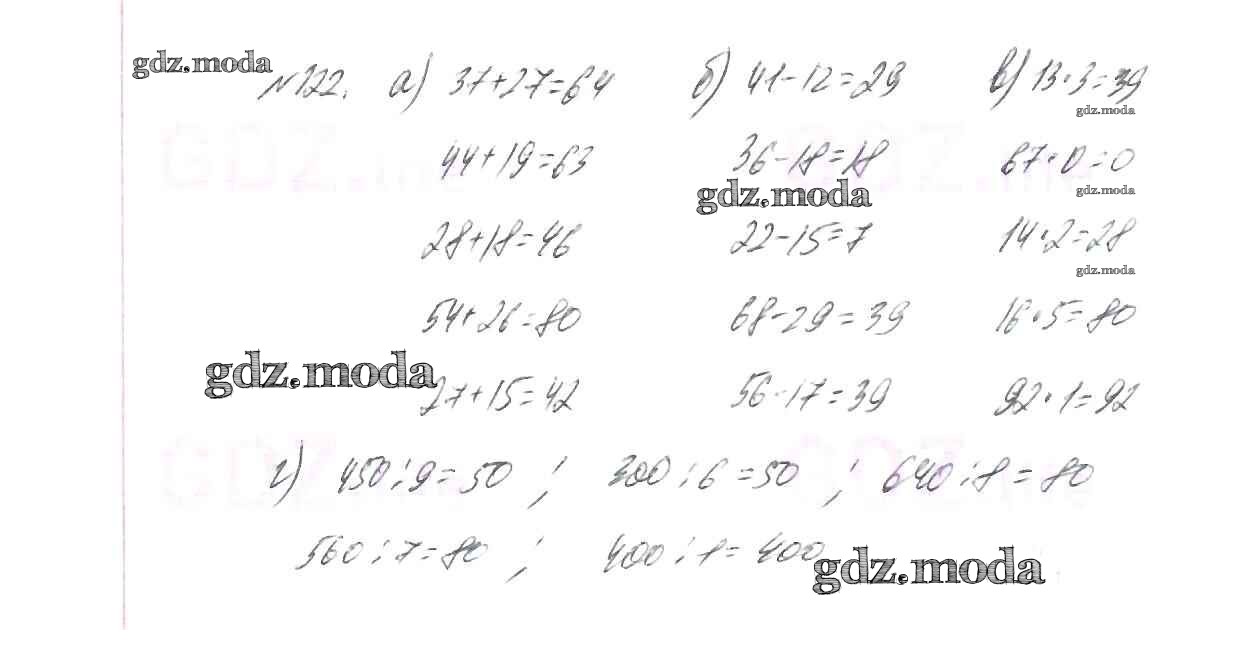 gdz.moda
№122. а) 37+27=64 б) 41-12=29 в) 13·3=39
gdz.moda
44+19=63 36-18=18 67·0=0
gdz.moda gdz.moda
28+18=46 22-15=7 14·2=28
gdz.moda
54+26=80 68-29=39 16·5=80
gdz.moda
27+15=42 56-17=39 92·1=92
г) 450:9=50 ; 300:6=50 ; 640:8=80
560:7=80 ; 400:1=400
gdz.moda